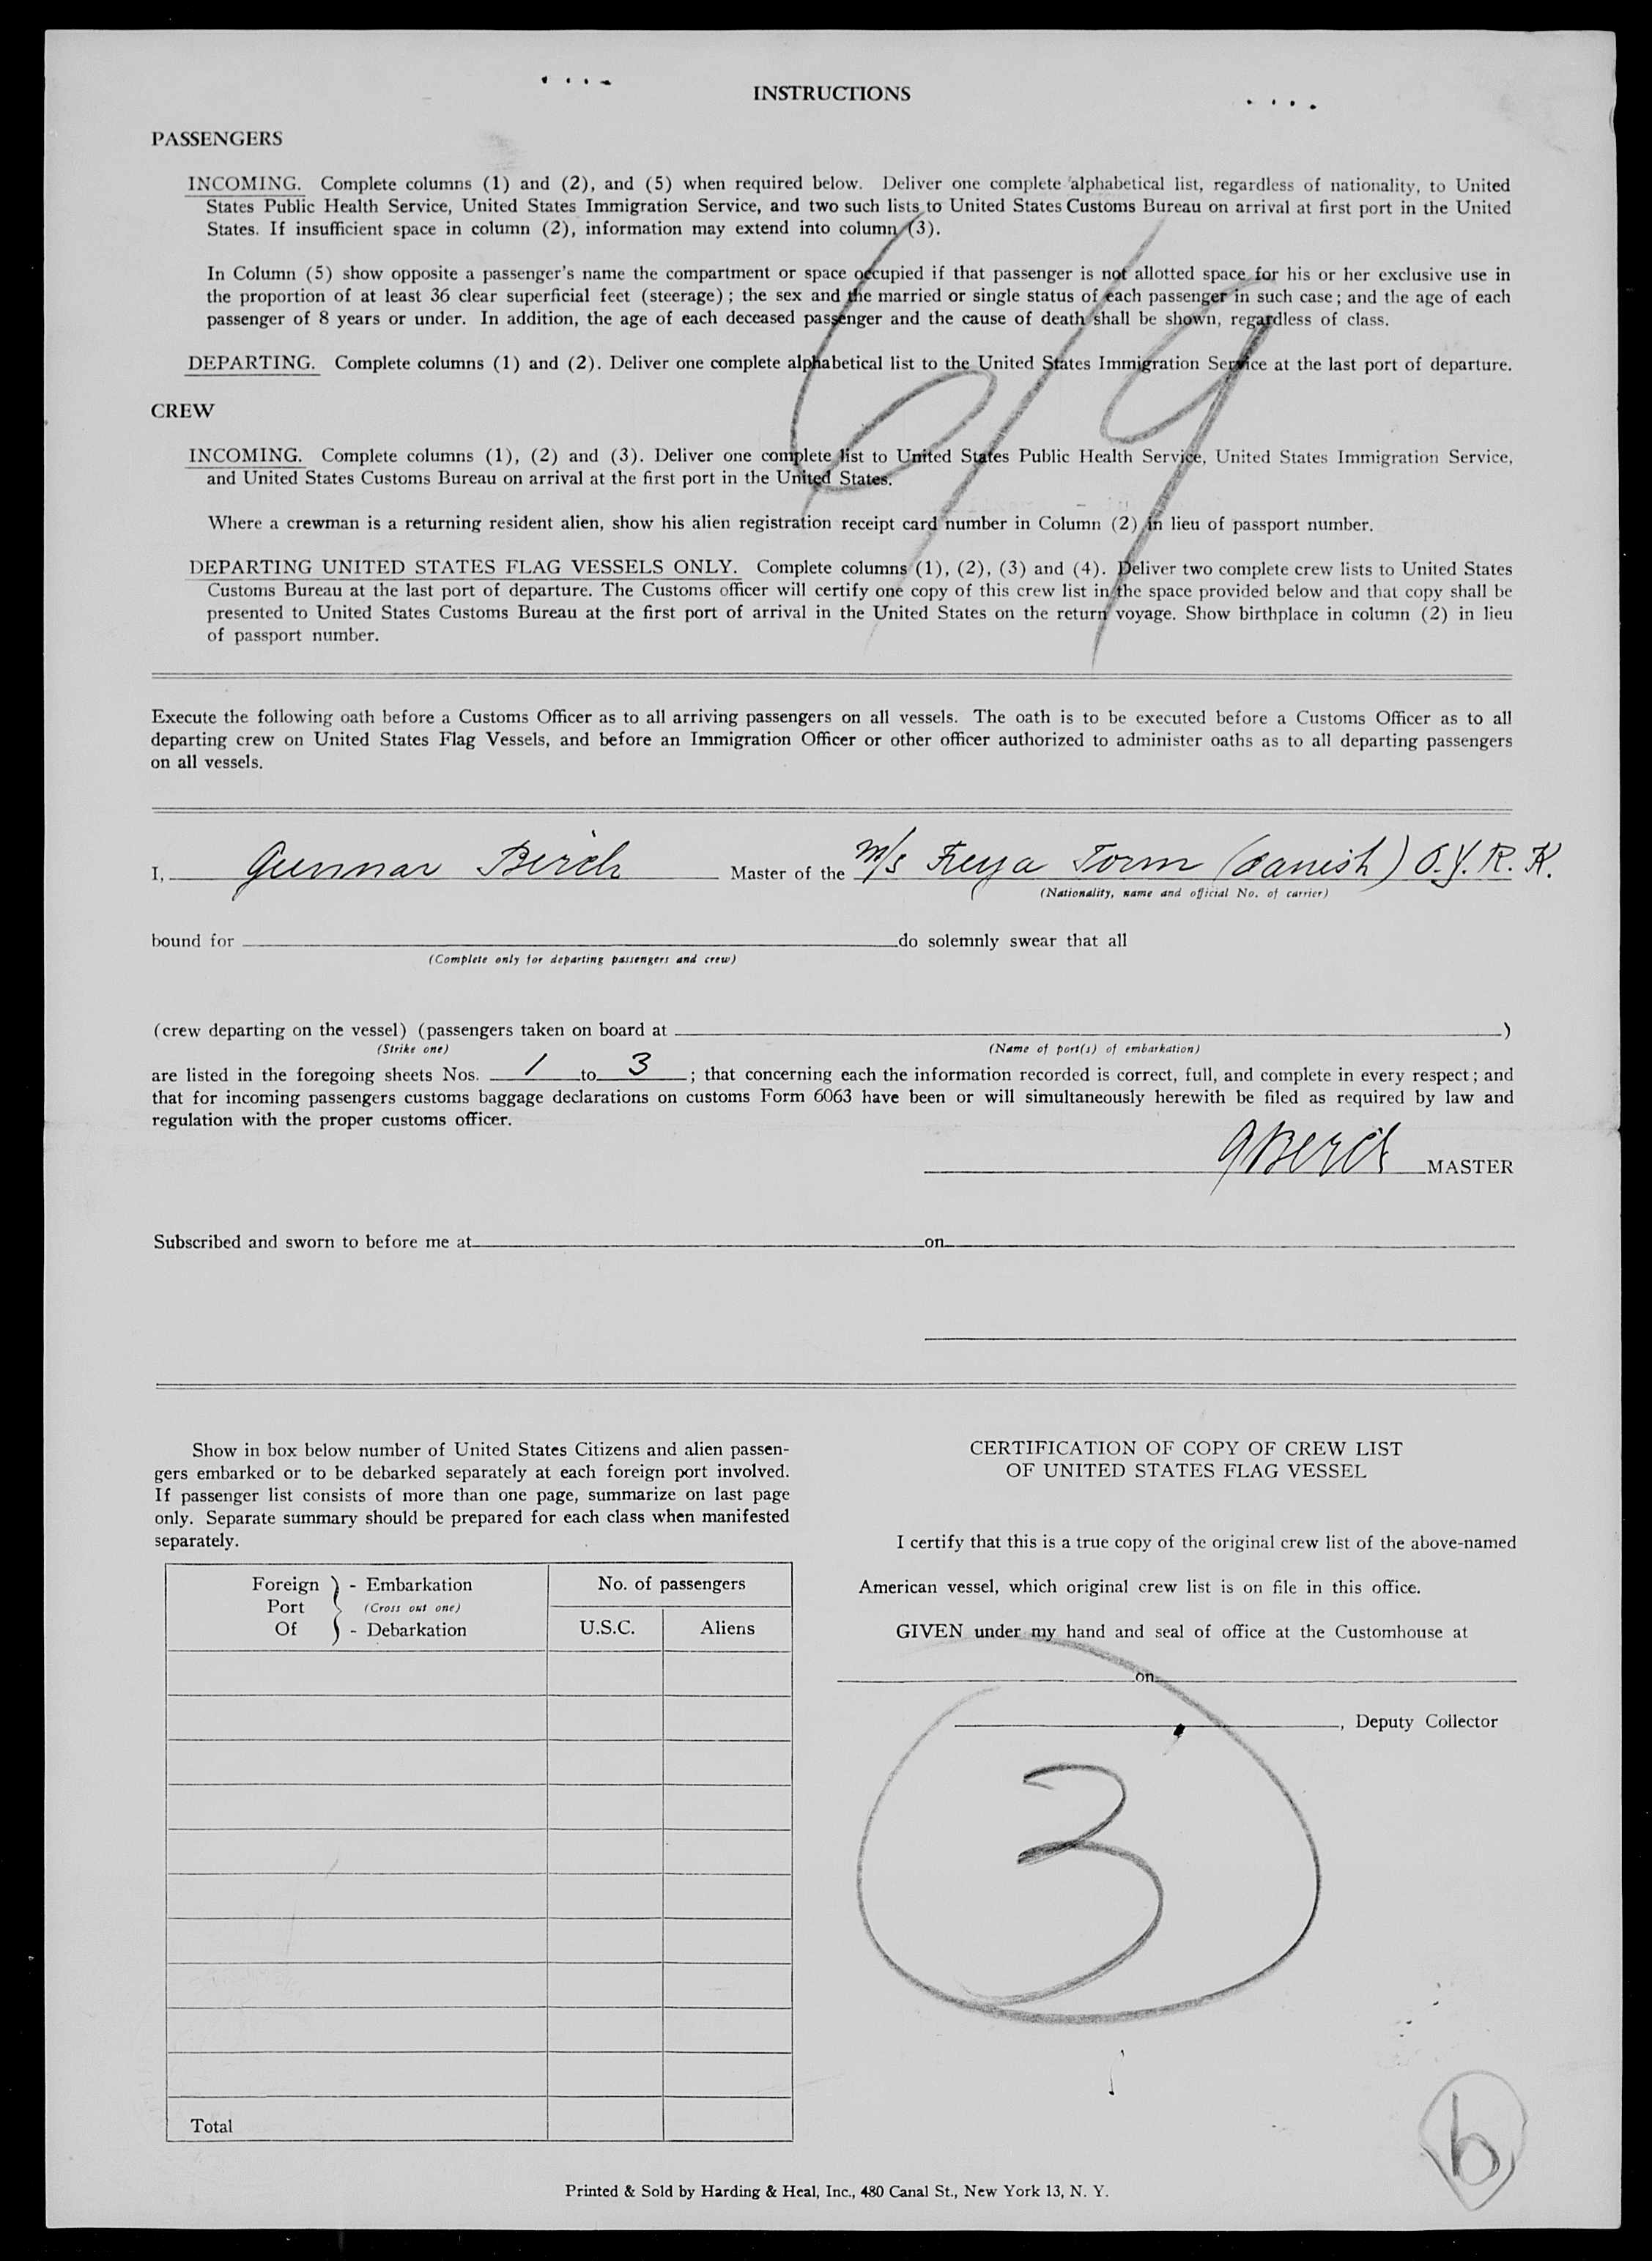 INSTRUCTIONS
PASSENGERS
INCOMING. Complete columns (1) and (2), and (5) when required below. Deliver one complete alphabetical list, regardless of nationality, to United
States Public Health Service, United States Immigration Service, and two such lists to United States Customs Bureau on arrival at first port in the United
States. If insufficient space in column (2), information may extend into column (3).
In Column (5) show opposite a passenger's name the compartment or space occupied if that passenger is not allotted space for his or her exclusive use in
the proportion of at least 36 clear superficial feet (steerage); the sex and the married or single status of each passenger in such case; and the age of each
passenger of 8 years or under. In addition, the age of each deceased passenger and the cause of death shall be shown, regardless of class.
DEPARTING. Complete columns (1) and (2). Deliver one complete alphabetical list to the United States Immigration Service at the last port of departure.
6/9
CREW
INCOMING. Complete columns (1), (2) and (3). Deliver one complete list to United States Public Health Service, United States Immigration Service,
and United States Customs Bureau on arrival at the first port in the United States.
Where a crewman is a returning resident alien, show his alien registration receipt card number in Column (2) in lieu of passport number.
DEPARTING UNITED STATES FLAG VESSELS ONLY. Complete columns (1), (2), (3) and (4). Deliver two complete crew lists to United States
Customs Bureau at the last port of departure. The Customs officer will certify one copy of this crew list in the space provided below and that copy shall be
presented to United States Customs Bureau at the first port of arrival in the United States on the return voyage. Show birthplace in column (2) in lieu
of passport number.
Execute the following oath before a Customs Officer as to all arriving passengers on all vessels. The oath is to be executed before a Customs Officer as to all
departing crew on United States Flag Vessels, and before an Immigration Officer or other officer authorized to administer oaths as to all departing passengers
on all vessels.
I, Gunnar Birch Master of the M/S Freya Torm (danish) O.Y.R.K.
(Nationality, name and official No. of carrier)
bound for do solemnly swear that all
(Complete only for departing passengers and crew)
(crew departing on the vessel) (passengers taken on board at )
(Strike one) (Name of port(s) of embarkation)
are listed in the foregoing sheets Nos. 1 to 3 ; that concerning each the information recorded is correct, full, and complete in every respect; and
that for incoming passengers customs baggage declarations on customs Form 6063 have been or will simultaneously herewith be filed as required by law and
regulation with the proper customs officer.
GBirch MASTER
Subscribed and sworn to before me at on
Show in box below number of United States Citizens and alien passen-
gers embarked or to be debarked separately at each foreign port involved.
If passenger list consists of more than one page, summarize on last page
only. Separate summary should be prepared for each class when manifested
separately.
Foreign Port Of - Embarkation
(Cross out one)
- Debarkation
No. of passengers
U.S.C. Aliens
Total
CERTIFICATION OF COPY OF CREW LIST
OF UNITED STATES FLAG VESSEL
I certify that this is a true copy of the original crew list of the above-named
American vessel, which original crew list is on file in this office.
GIVEN under my hand and seal of office at the Customhouse at
on
, Deputy Collector
3
b
Printed & Sold by Harding & Heal, Inc., 480 Canal St., New York 13, N. Y.